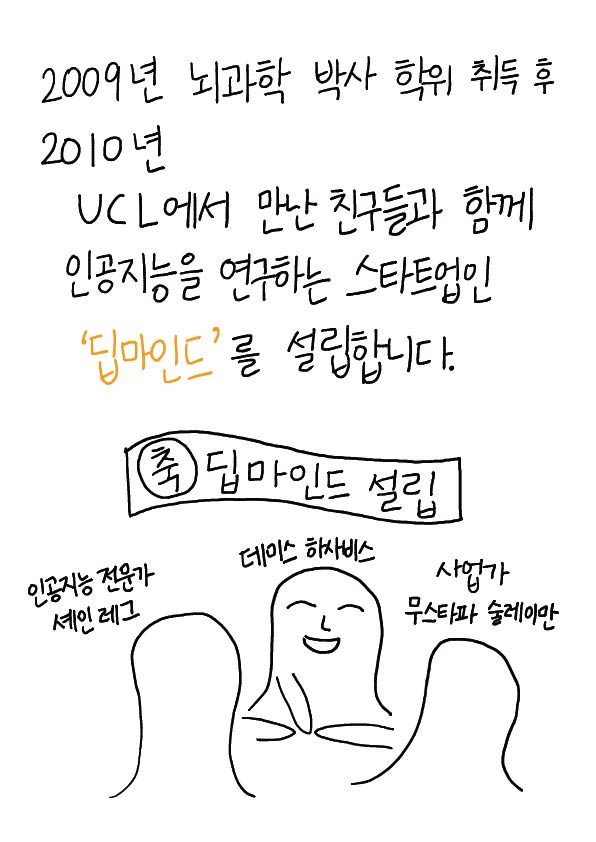 2009년 뇌과학 박사 학위 취득 후
2010년
UCL에서 만난 친구들과 함께
인공지능을 연구하는 스타트업인
'딥마인드'를 설립합니다.
축 딥마인드 설립
데미스 하사비스
인공지능 전문가
셰인 레그
사업가
무스타파 술레이만